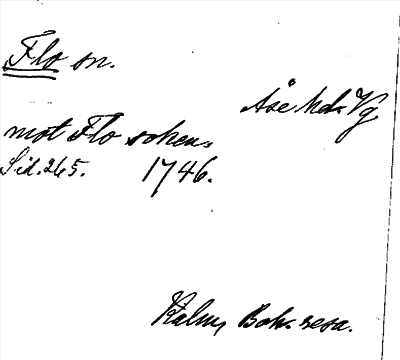 Flo sn.
Åse hd. Vg
mot Flo soken.
Sid. 265. 1746.
Kalm, Boh. resa.